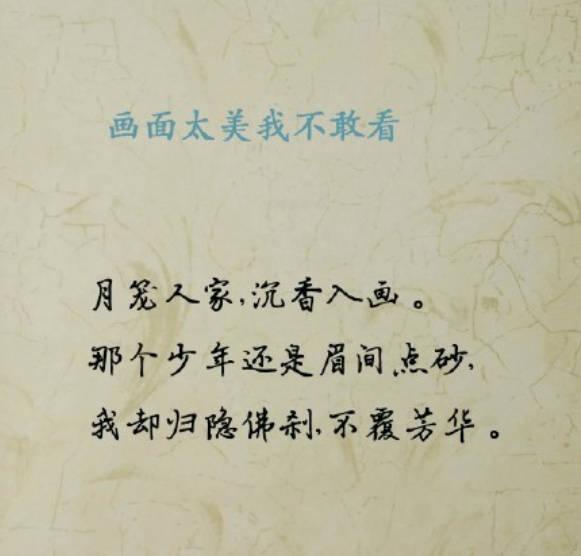 画面太美我不敢看
月笼人家,沉香入画。
那个少年还是眉间点砂,
我却归隐佛刹,不覆芳华。